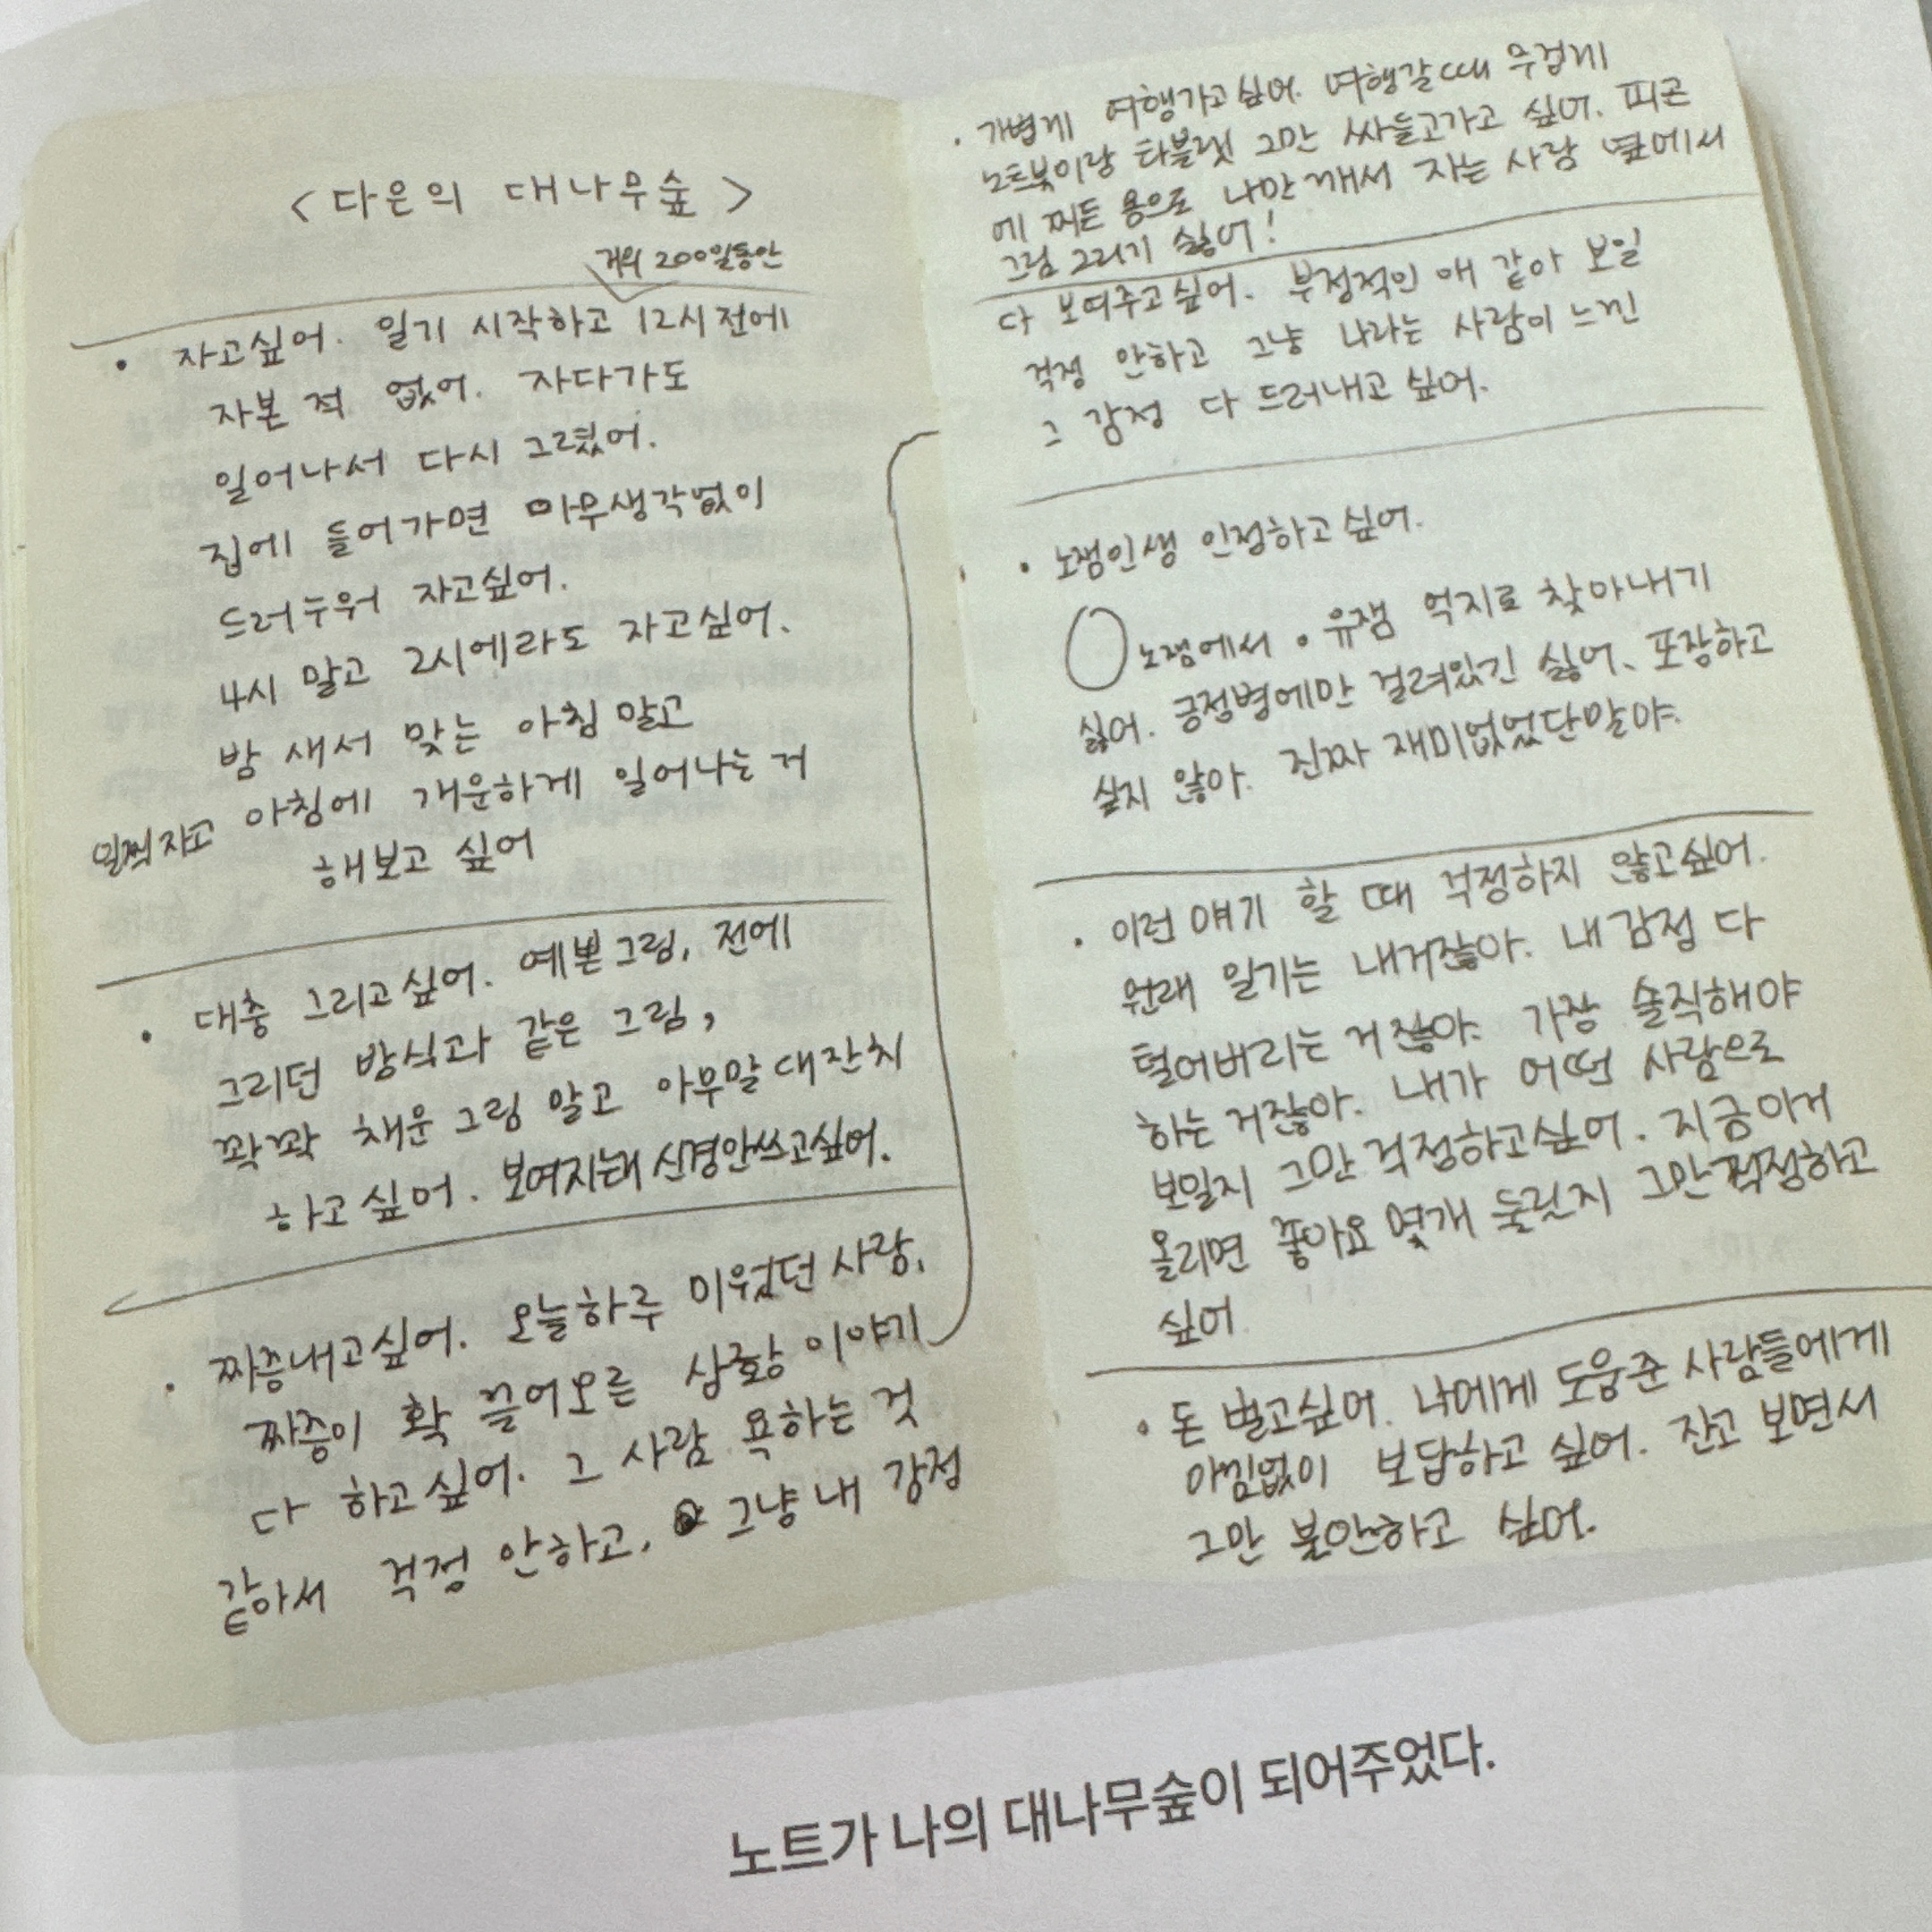 < 다은의 대나무숲 >
거의 200일동안
· 자고싶어. 일기 시작하고 12시 전에
자본 적 없어. 자다가도
일어나서 다시 그렸어.
집에 들어가면 아무생각없이
드러누워 자고싶어.
4시 말고 2시에라도 자고싶어.
밤 새서 맞는 아침 말고
일찍자고 아침에 개운하게 일어나는 거
해보고 싶어
· 대충 그리고싶어. 예쁜그림, 전에
그리던 방식과 같은 그림,
꽉꽉 채운 그림 말고 아무말대잔치
하고싶어. 보여지는데 신경안쓰고싶어.
· 짜증내고싶어. 오늘하루 미웠던 사람,
짜증이 확 끌어오른 상황 이야기
다 하고싶어. 그 사람 욕하는 것
같아서 걱정 안하고, 그냥 내 감정
· 가볍게 여행가고싶어. 여행갈때 무겁게
노트북이랑 타블렛 그만 싸들고가고 싶어. 피곤
에 찌든 몸으로 나만 깨서 자는 사람 옆에서
그림 그리기 싫어!
다 보여주고싶어. 부정적인 애 같아 보일
걱정 안하고 그냥 나라는 사람이 느낀
그 감정 다 드러내고 싶어.
· 노잼인생 인정하고싶어.
노잼에서 유잼 억지로 찾아내기
싫어. 긍정병에만 걸려있긴 싫어. 포장하고
싶지 않아. 진짜 재미없었단말야.
· 이런 얘기 할 때 걱정하지 않고싶어.
원래 일기는 내거잖아. 내 감정 다
털어버리는 거잖아. 가장 솔직해야
하는 거잖아. 내가 어떤 사람으로
보일지 그만 걱정하고싶어. 지금 이거
올리면 좋아요 몇개 눌릴지 그만 걱정하고
싶어
· 돈 벌고싶어. 나에게 도움준 사람들에게
아낌없이 보답하고 싶어. 잔고 보면서
그만 불안하고 싶어.
노트가 나의 대나무숲이 되어주었다.